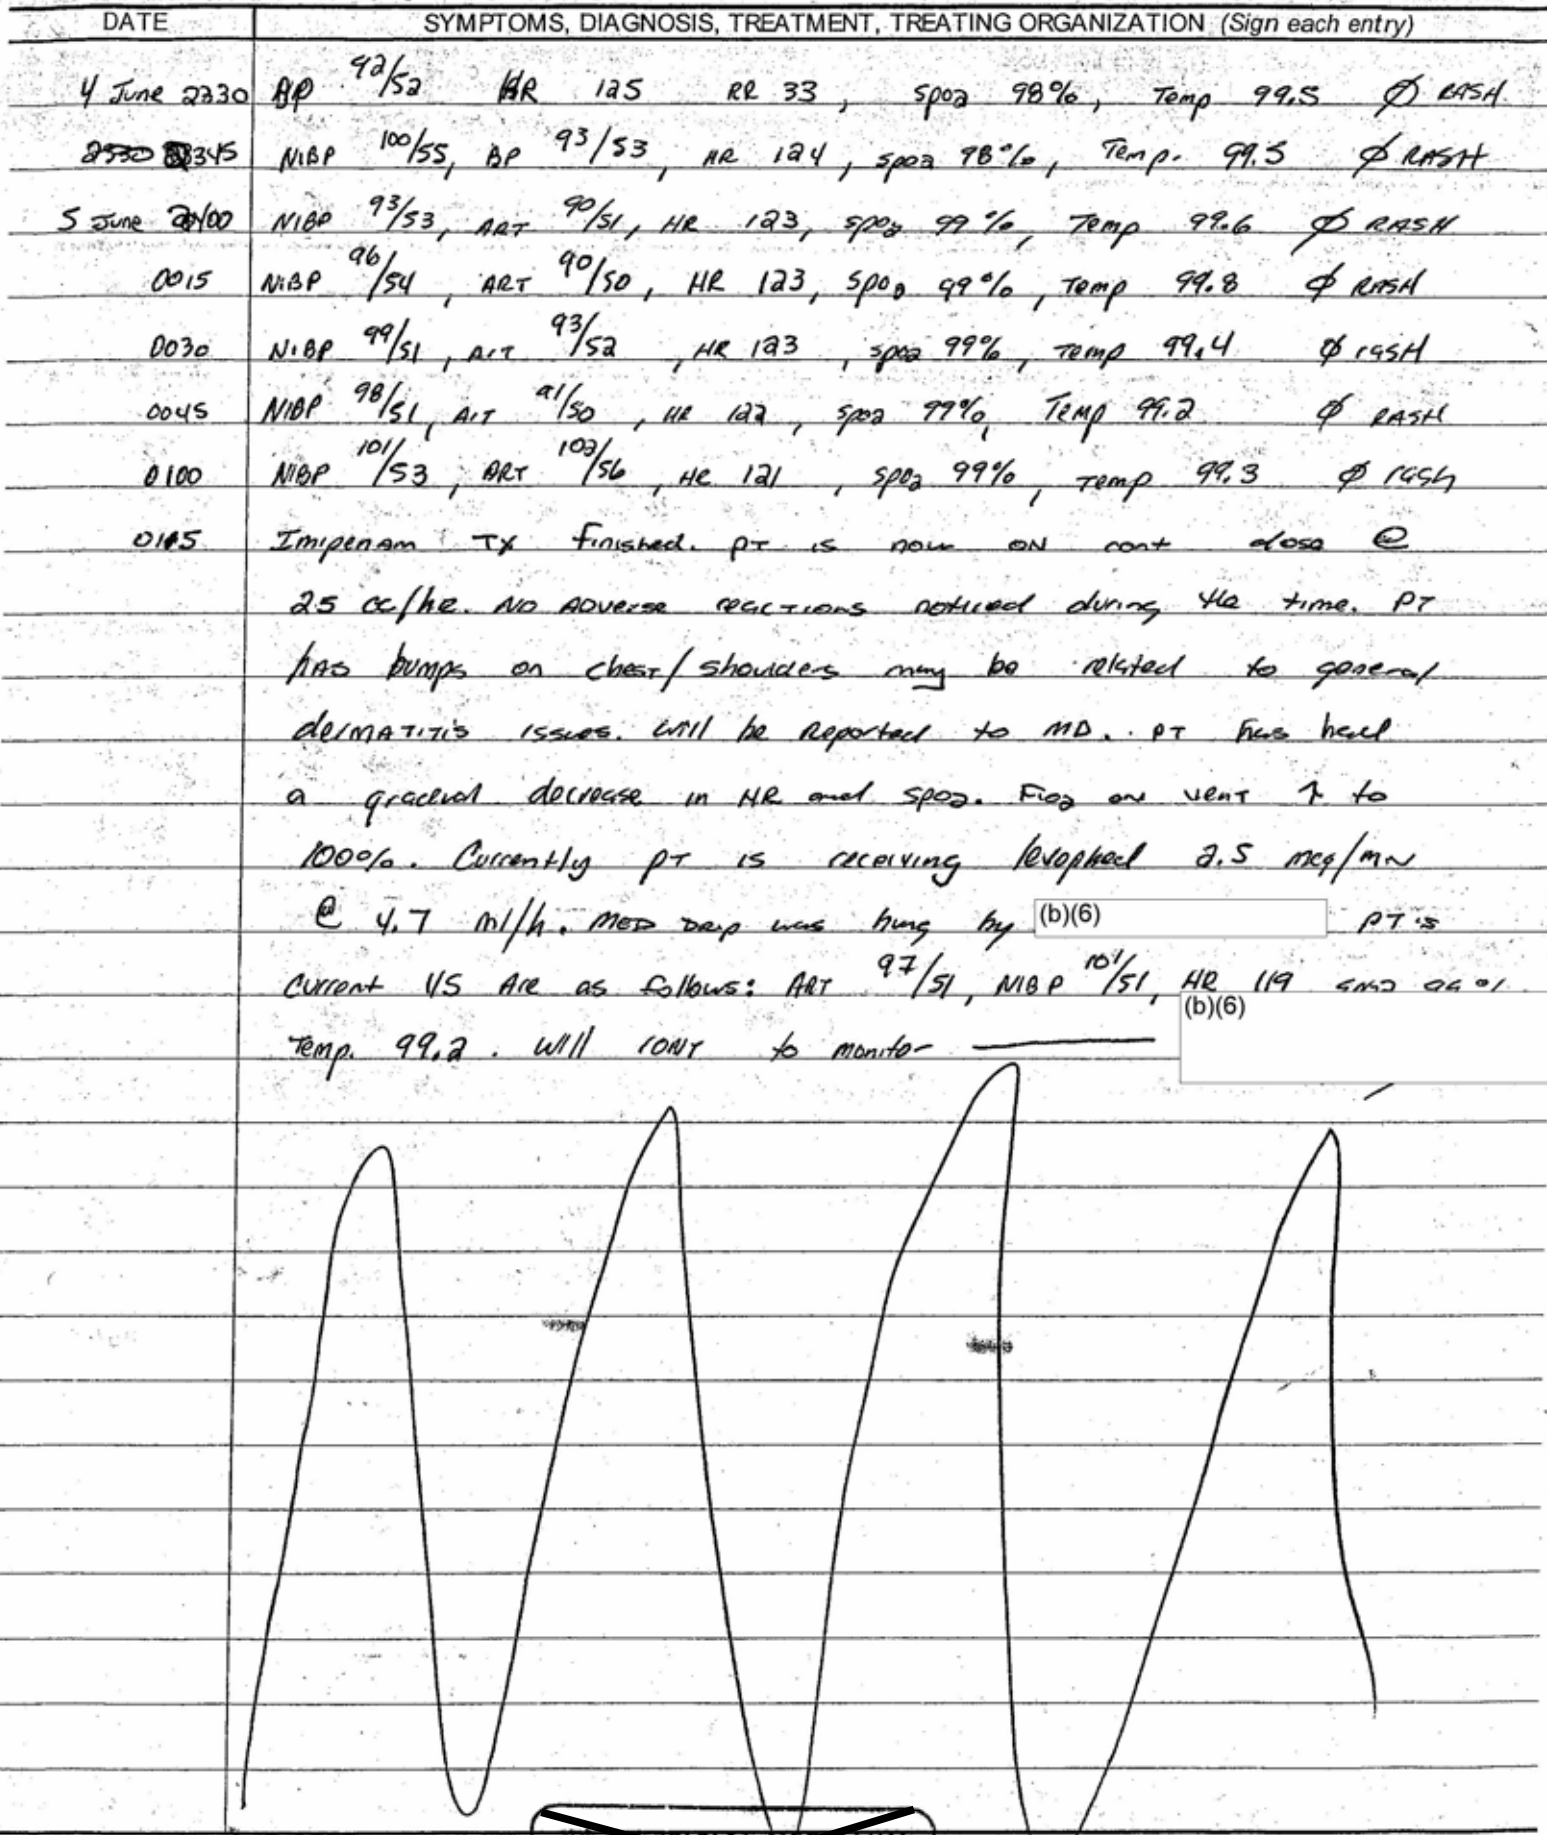 DATE SYMPTOMS, DIAGNOSIS, TREATMENT, TREATING ORGANIZATION (Sign each entry)
4 June 2330 BP 92/52 HR 125 RR 33, SpO2 98%, Temp 99.5 Ø RASH.
2345 NIBP 100/55, BP 93/53, HR 124, SpO2 98%, Temp. 99.5 Ø RASH
5 June NIBP 93/53, ART 90/51, HR 123, SpO2 99%, Temp 99.6 Ø RASH
0015 NIBP 96/54, ART 90/50, HR 123, SpO2 99%, Temp 99.8 Ø RASH
0030 NIBP 99/51, Art 93/52, HR 123, SpO2 99%, Temp 99.4 Ø rash
0045 NIBP 98/51, Art 91/50, HR 122, SpO2 99%, Temp 99.2 Ø RASH
0100 NIBP 101/53, ART 102/56, HR 121, SpO2 99%, Temp 99.3 Ø rash
Imipenam TX finished. PT is now ON cont dose @
25 cc/hr. NO ADVERSE reactions noticed during the time. PT
HAS bumps on chest/shoulders may be related to general
dermatitis issues. Will be Reported to MD. PT has had
a gradual decrease in HR and SpO2. FiO2 on vent ↑ to
100%. Currently PT is receiving levophed 2.5 mcg/mn
@ 4.7 ml/h. MED Drip was hung by (b)(6) PT's
Current VS Are as follows: ART 97/51, NIBP 101/51, HR 119
(b)(6)
Temp. 99.2. Will cont to monitor